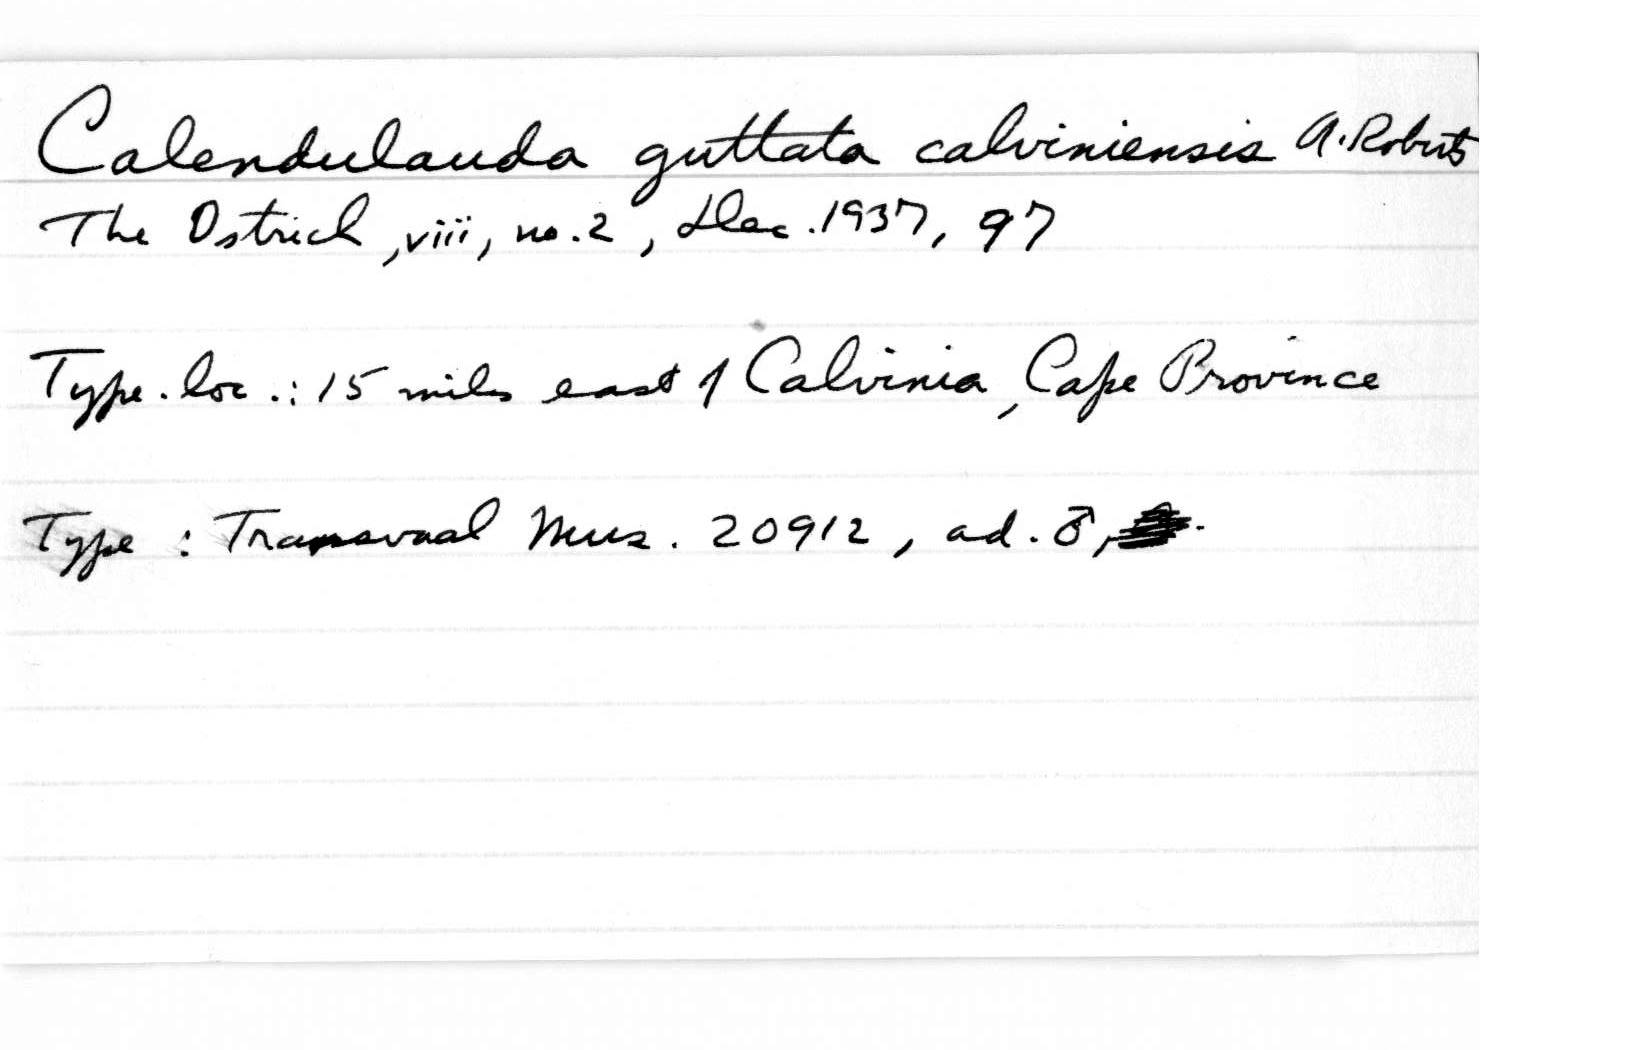 Calendulauda guttata calviniensis A. Roberts
The Ostrich, viii, no. 2, Dec. 1937, 97
Type. loc.: 15 miles east of Calvinia, Cape Province
Type: Transvaal Mus. 20912, ad. ♂,